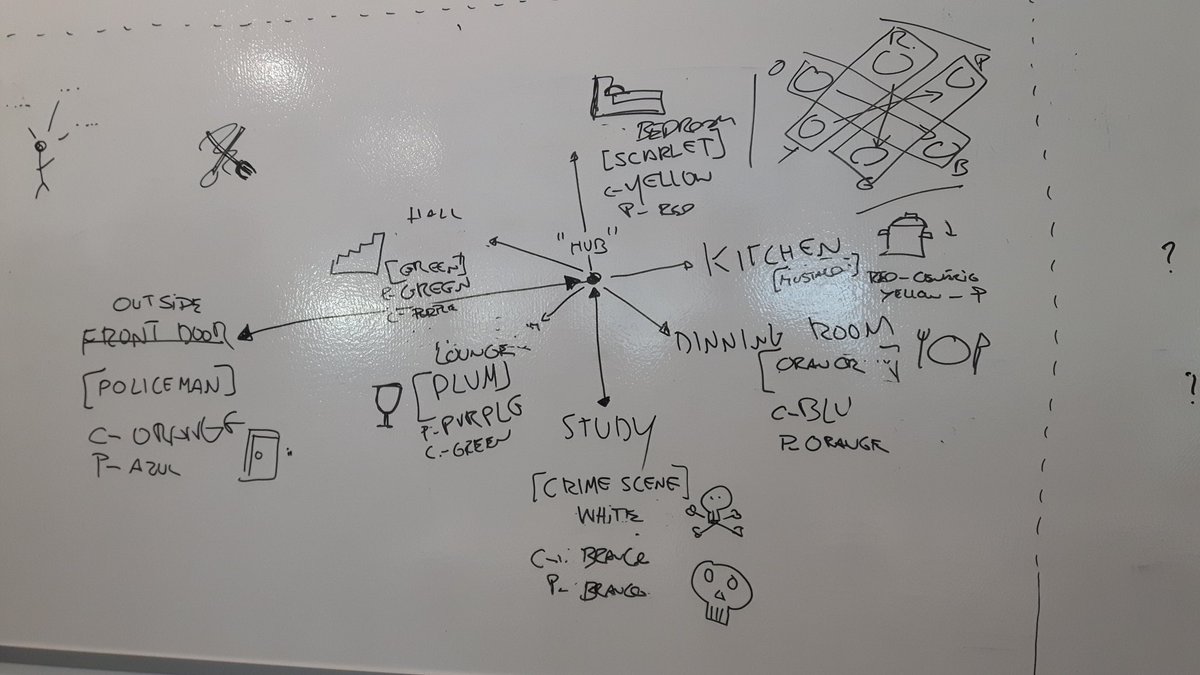 BEDROOM
[SCARLET]
C-YELLOW
P-RED
R.
P
O
Y
G
B
HALL
[GREEN]
GREEN
"HUB"
KITCHEN
[MUSTARD]
RED-
YELLOW-P
OUTSIDE
FRONT DOOR
[POLICEMAN]
C-ORANGE
P-AZUL
LOUNGE
[PLUM]
P-PURPLE
C-GREEN
DINNING ROOM
C-BLU
P-ORANGE
STUDY
[CRIME SCENE]
WHITE
P- BRANCO
?
?